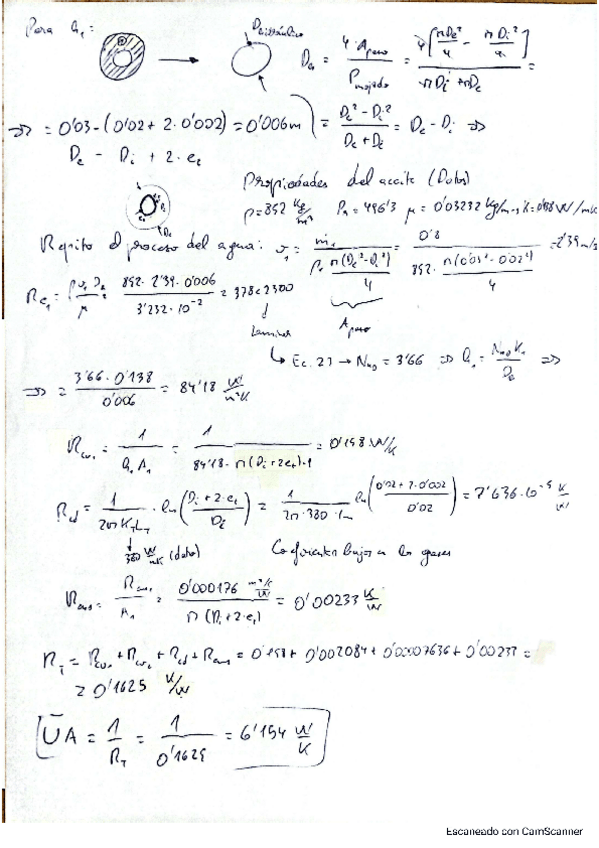 Para h₁:
D equivalente
Dₑ = 4·A paso / P mojado = 4[πDₑ²/4 − πDᵢ²/4] / (πDᵢ + πDₑ) =
=> = 0'03 − (0'02 + 2·0'002) = 0'006 m
= (Dₑ² − Dᵢ²) / (Dₑ + Dᵢ) = Dₑ − Dᵢ =>
Dₑ − Dᵢ + 2·eₜ
Propiedades del aceite (Datos)
ρ = 852 Kg/m³ Pᵣ = 496'3 μ = 0'03232 Kg/m·s K = 0'138 W/mK
Repito el proceso del agua: v₁ = ṁ₁ / (ρ·π(Dₑ²−Dᵢ²)/4) = 0'8 / (852·π(0'03²−0'024²)/4) = 2'39 m/s
A paso
Re₁ = ρv₁Dₑ/μ = 852·2'39·0'006 / 3'232·10⁻² = 378 < 2300
Laminar
Ec. 21 → N_uD = 3'66 => h₁ = N_uD K₁ / Dₑ =>
=> = 3'66·0'138 / 0'006 = 84'18 W/m²K
R_cv₁ = 1 / h₁A₁ = 1 / 84'18·π(Dᵢ+2eₜ)·1 = 0'158 W/K
R_cd = 1 / 2πKₜLₜ · ln((Dᵢ+2·eₜ)/Dᵢ) = 1 / 2π·380·1m ln((0'02+2·0'002)/0'02) = 7'636·10⁻⁵ K/W
380 W/mK (dato)
R_ens = R_ens₁ / A₁ = 0'000176 m²K/W / π(Dᵢ+2·eₜ) = 0'00233 K/W
R_T = R_cv₁ + R_cv₂ + R_cd + R_ens = 0'158 + 0'002084 + 0'00007636 + 0'00233 =
= 0'1625 K/W
UA = 1/R_T = 1/0'1625 = 6'154 W/K
Escaneado con CamScanner